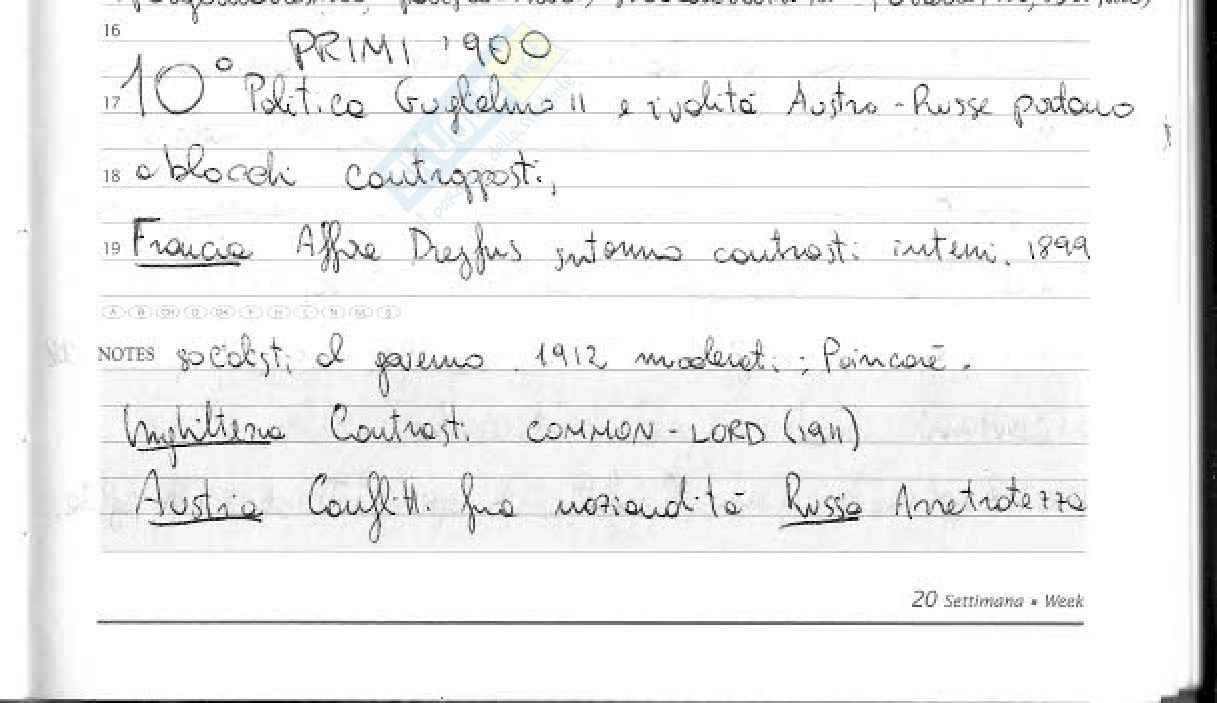 16
PRIMI '900
10°
17 Politica Guglielmo II e rivalità Austro-Russe portano
18 a blocchi contrapposti,
19 Francia Affare Dreyfus contrasti interni. 1899
NOTES socialisti al governo. 1912 moderati: Poincarè.
Inghilterra Contrasti COMMON-LORD (1911)
Austria Conflitti fra nazionalità Russia Arretratezza
20 Settimana ▪ Week